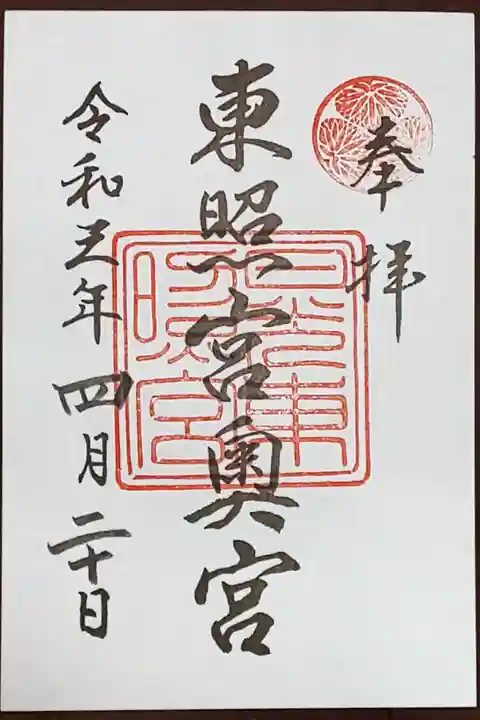 奉拝
東照宮奥宮
令和五年四月二十日
日光東
照宮